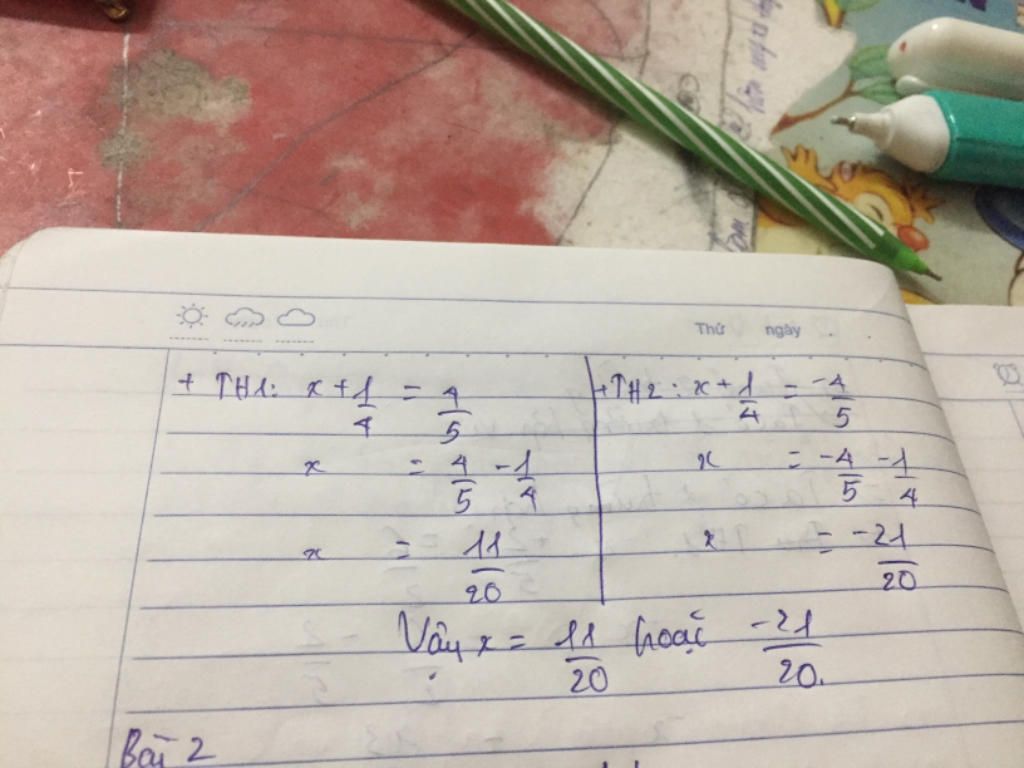 Thứ ngày
+ TH1: x + 1/4 = 4/5
x = 4/5 - 1/4
x = 11/20
+ TH2: x + 1/4 = -4/5
x = -4/5 - 1/4
x = -21/20
Vậy x = 11/20 hoặc -21/20.
Bài 2